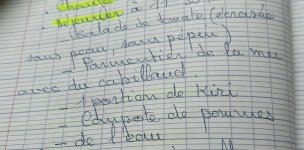 Déjeuner à 11
Salade de tomate (écrasée
sans peau, sans pépin)
- Parmentier de la mer
avec du cabillaud.
- 1 portion de Kiri
- Compote de pommes
- de l'eau